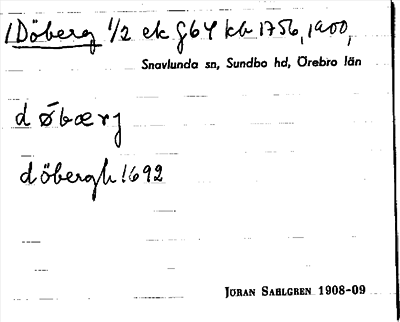 Döberg 1/2 ek g64 kb 1756, 1900,
Snavlunda sn, Sundbo hd, Örebro län
døbærj
döbergh 1692
JÖRAN SAHLGREN 1908-09